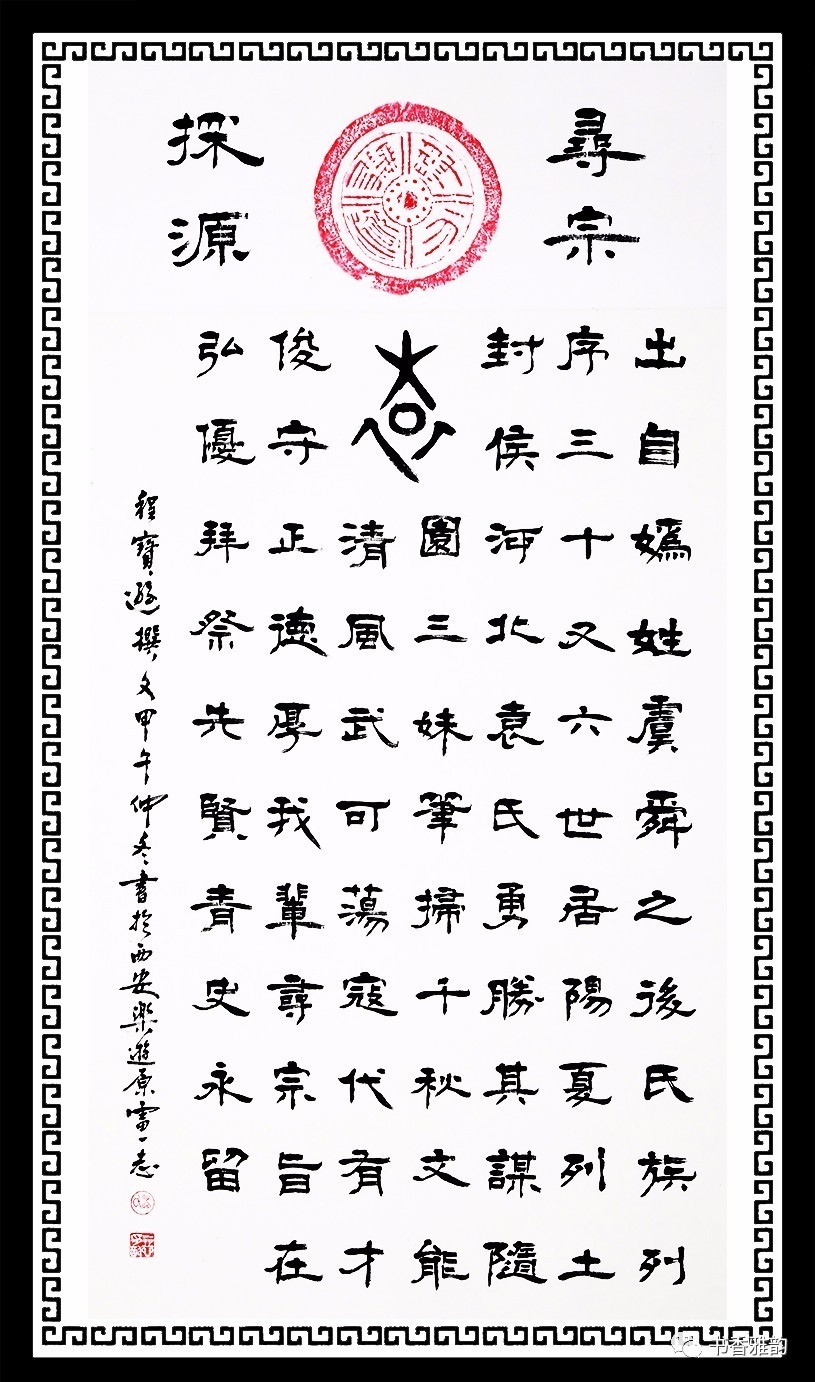 尋宗
探源
出自媯姓虞舜之後氏族列
序三十又六世居陽夏列土
封侯河北袁氏勇勝其謀隨
園三妹筆掃千秋文能
清風武可蕩寇代有才
俊守正德厚我輩尋宗旨在
弘優拜祭先賢青史永留
程寶遜撰文甲午仲冬書於西安樂遊原雷一志
书香雅韵